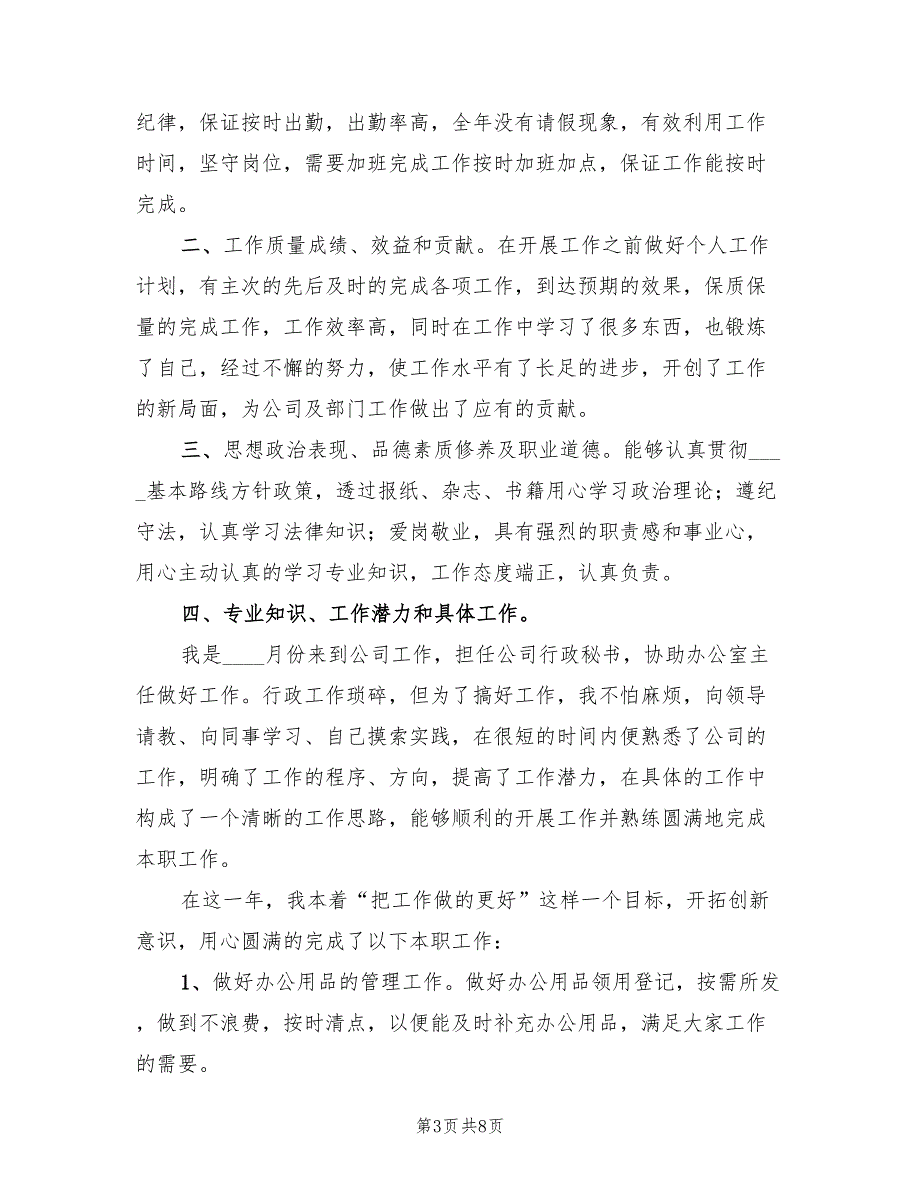 纪律，保证按时出勤，出勤率高，全年没有请假现象，有效利用工作
时间，坚守岗位，需要加班完成工作按时加班加点，保证工作能按时
完成。
二、工作质量成绩、效益和贡献。在开展工作之前做好个人工作
计划，有主次的先后及时的完成各项工作，到达预期的效果，保质保
量的完成工作，工作效率高，同时在工作中学习了很多东西，也锻炼
了自己，经过不懈的努力，使工作水平有了长足的进步，开创了工作
的新局面，为公司及部门工作做出了应有的贡献。
三、思想政治表现、品德素质修养及职业道德。能够认真贯彻___
_基本路线方针政策，透过报纸、杂志、书籍用心学习政治理论；遵纪
守法，认真学习法律知识；爱岗敬业，具有强烈的职责感和事业心，
用心主动认真的学习专业知识，工作态度端正，认真负责。
四、专业知识、工作潜力和具体工作。
我是____月份来到公司工作，担任公司行政秘书，协助办公室主
任做好工作。行政工作琐碎，但为了搞好工作，我不怕麻烦，向领导
请教、向同事学习、自己摸索实践，在很短的时间内便熟悉了公司的
工作，明确了工作的程序、方向，提高了工作潜力，在具体的工作中
构成了一个清晰的工作思路，能够顺利的开展工作并熟练圆满地完成
本职工作。
在这一年，我本着“把工作做的更好”这样一个目标，开拓创新
意识，用心圆满的完成了以下本职工作：
1、做好办公用品的管理工作。做好办公用品领用登记，按需所发
，做到不浪费，按时清点，以便能及时补充办公用品，满足大家工作
的需要。
第3页 共8页